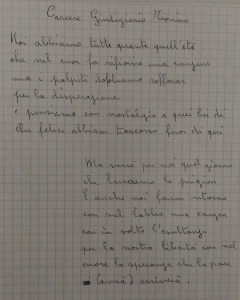 Carcere Giudiziario Torino
Noi abbiamo tutte quante quell'età
che nel cuor fa rifiorire una canzon
ma i palpiti dobbiamo soffocar
per la disperazione
e pensiamo con nostalgia a quei bei dì
che felici abbiam trascorso fuor di qui
Ma verrà per noi quel giorno
che lasceremo la prigion
E anche noi farem ritorno
con sul labbro una canzon
con in volto l'esultanza
per la nostra libertà con nel
cuore la speranza che la pace
arriverà.